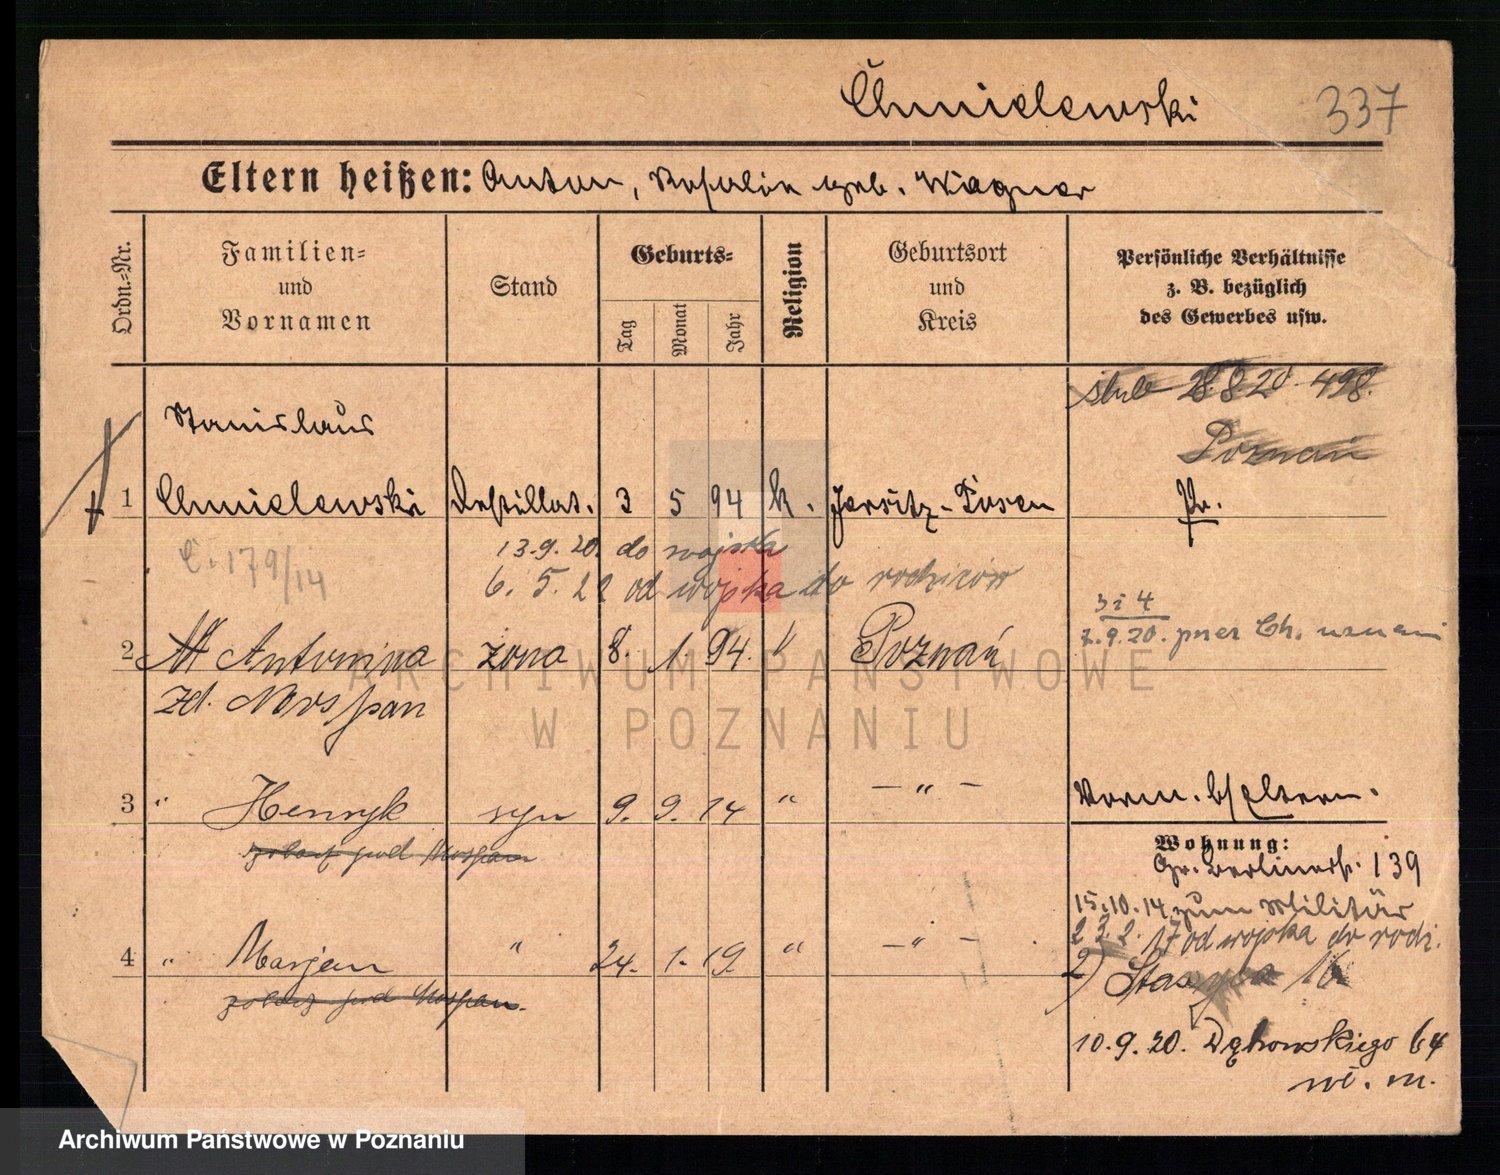 Chmielewski 337
Eltern heißen: Anton, Rosalie geb. Wagner
Ordn.-Nr.
Familien-
und
Vornamen
Stand
Geburts-
Tag
Monat
Jahr
Religion
Geburtsort
und
Kreis
Persönliche Verhältnisse
z. B. bezüglich
des Gewerbes usw.
ślub 28.8.20. 498.
Poznań
Stanislaus
1 Chmielewski Destillat. 3 5 94 k. Jersitz-Posen
Pr.
13.9.20. do wojska
C. 179/14
6. 5. 22 od wojska do rodziców
3 i 4
7.9.20. przez Ch. uznani
2 Antonina żona 8. 1. 94. " Poznań
zd. Nospan
3 " Henryk syn 9. 9. 14 " — " —
Vorm. b/Eltern.
Wohnung:
Gr. Berlinerstr. 139
15.10.14 zum Militär
23.2.17 od wojska do rodz.
4 " Marjan " 24. 1. 19. " — " —
2) Staszyca 16
10.9.20. Dąbrowskiego 64
ARCHIWUM PAŃSTWOWE
W POZNANIU
Archiwum Państwowe w Poznaniu